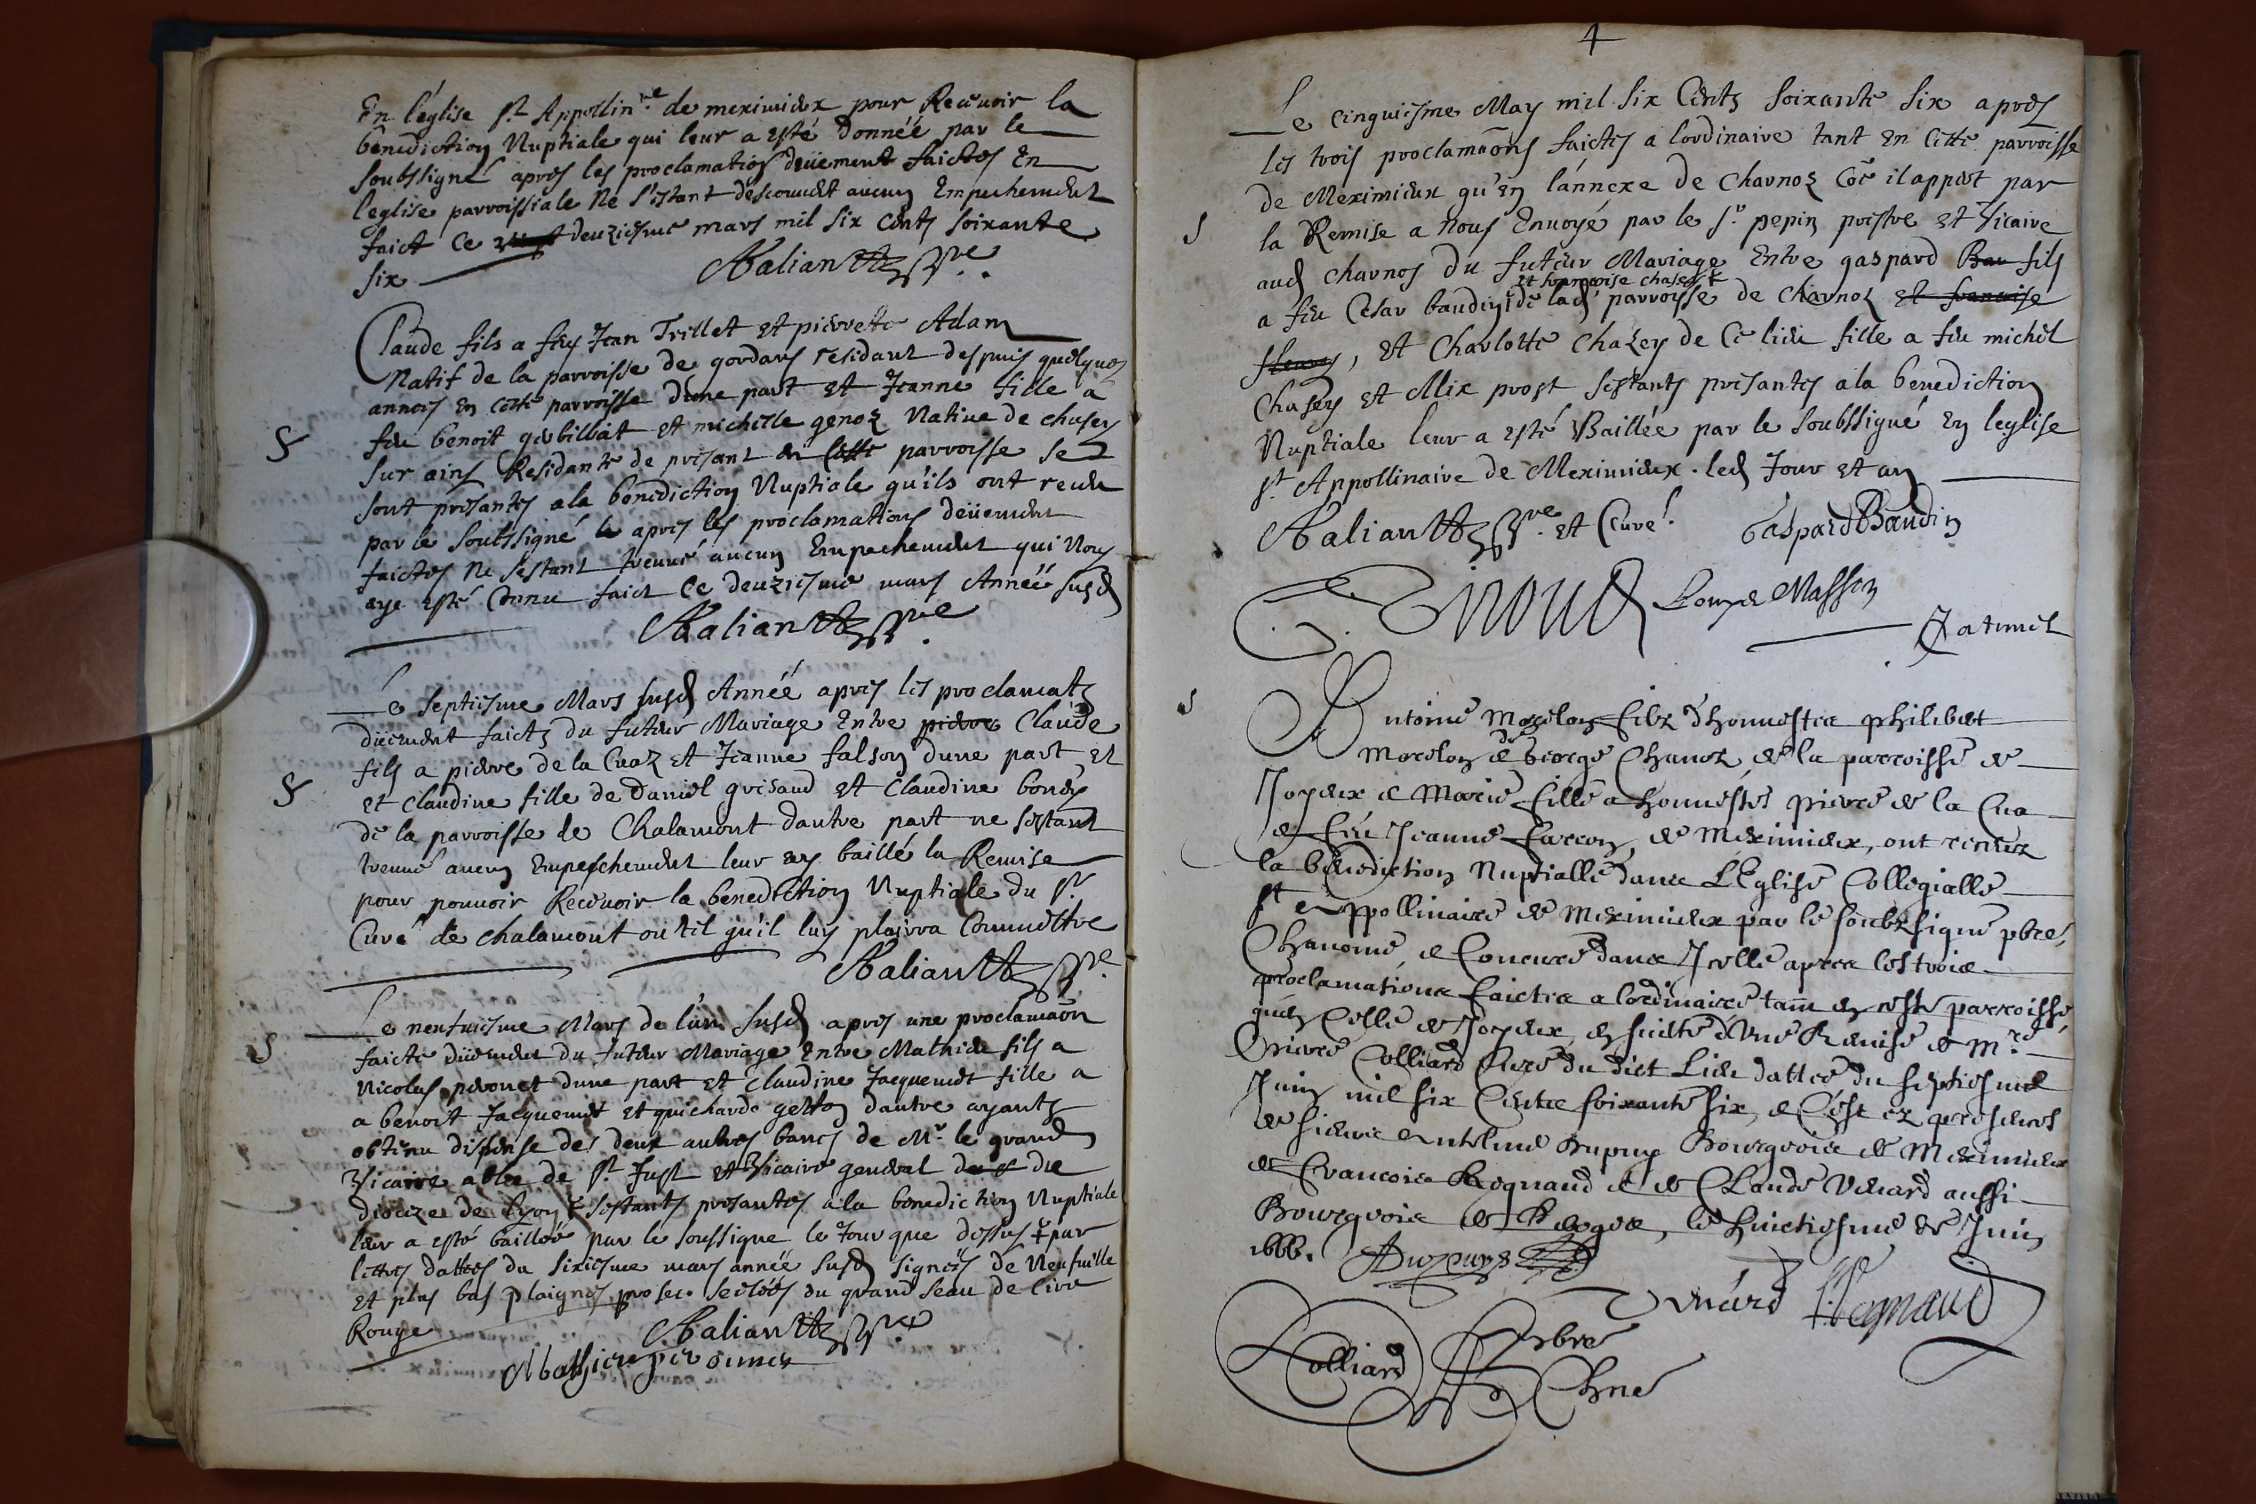 En l'eglise St Appollin.re de meximieux pour Recevoir la
benediction Nuptiale qui leur a esté donnéé par le
soubssigné apres les proclamatios deüement faictes En
l'eglise parroissiale Ne s'estant descouvert aucun Empechement
faict Ce deuziesme mars mil six cents soixante
six
Claude fils a feu Jean Trillet et pierrete Adam
Natif de la parroisse de gordans residant despuis quelques
annees En cette parroisse dune part et Jeanne fille a
feu benoit et michelle genoz Native de chasey
sur ains Residante de presant en Cette parroisse se
sont presantes a la benediction Nuptiale qu'ils ont receu
par le soubssigné apres les proclamations deüement
faictes Ne sestant treuué aucun Empechement qui Nous
aye esté Connu faict Ce deuziesme mars Annéé susd
Le septiesme Mars susd Annéé apres les proclamats
düement faicts du futeur Mariage Entre pierre Claude
fils a pierre de la Cuaz et Jeanne falson dune part et
et Claudine fille de Daniel grisaud et Claudine bondy
de la parroisse de Chalamont dautre part ne sestant
treuué aucun Empeschement leur ay baillé la Remise
pour pouvoir Recevoir la benediction Nuptiale du Sr
Curé de chalamont ou tel qu'il luy plairra Commettre
Le neufuiesme Mars de l'an susd apres une proclamaon
faicte düement du futeur Mariage Entre Mathieu fils a
Nicolas peronet dune part et Claudine Jacquemet fille a
a benoit Jacquemet et guicharde getton dautre ayants
obtenu dispense des deux autres bancs de Mr le grand
Vicaire abbe de St Just et Vicaire general du
diocize de Lyon sestants presantes a la benediction Nuptiale
leur a esté bailléé par le soussigne le Jour que dessus par
lettres dattees du sixiesme mars année susd signéés de Neufuille
et plus bas plaignes pro secr. seelées du grand seau de Cire
Rouge
Mathieu peronnet
4
Le cinquiesme May mil six Cents soixante six apres
les trois proclamaons faictes a lordinaire tant en cette parroisse
de Meximieux qu'en l'annexe de Charnoz Coe il appert par
la Remise a nous Envoyé par le Sr pepin prestre et Vicaire
aud charnos du futeur Mariage Entre gaspard Bau fils
et francoise chasey
a feu Cesar baudin de lad parroisse de charnoz et francoise
, et Charlotte Chazey de Ce lieu fille a feu michel
Chasey et Mix prost sestants presantes a la benediction
Nuptiale leur a esté Baillée par le soubssigné En leglise
St Appollinaire de Meximieux. led Jour et an
et Curé. Gaspard Baudin
Masson
Antoine Morelon filz d'honnestes philibert
Morelon & George Chanoz, de la parroisse de
Joyeux & Marie fille a honnestes pierre de la Cua
& feu Jeanne farcon, de Meximieux, ont receu
la benediction Nuptialle dans L'Eglise Collegialle
St Appollinaire de Meximieux par le soubzsigné pbre,
Chanoine, & Concuré dans Icelle apres les trois
proclamations faictes a lordinaire tam en ceste parroisse,
qu'en Celle de Joyeux, en suitte d'Une Remise de Mre
pierre Colliard Curé du dict Lieu dattée du septiesme
Juin mil six Cents soixante six, & C'est ez presences
de sieurs Antelme Dupuy Bourgeois de Meximieux
de Francois Regnaud & de Claude Venard aussi
Bourgeois de, le huictiesme de Juin
1666.
Dupuys
Venard Regnaud
Colliard pbre
Chne